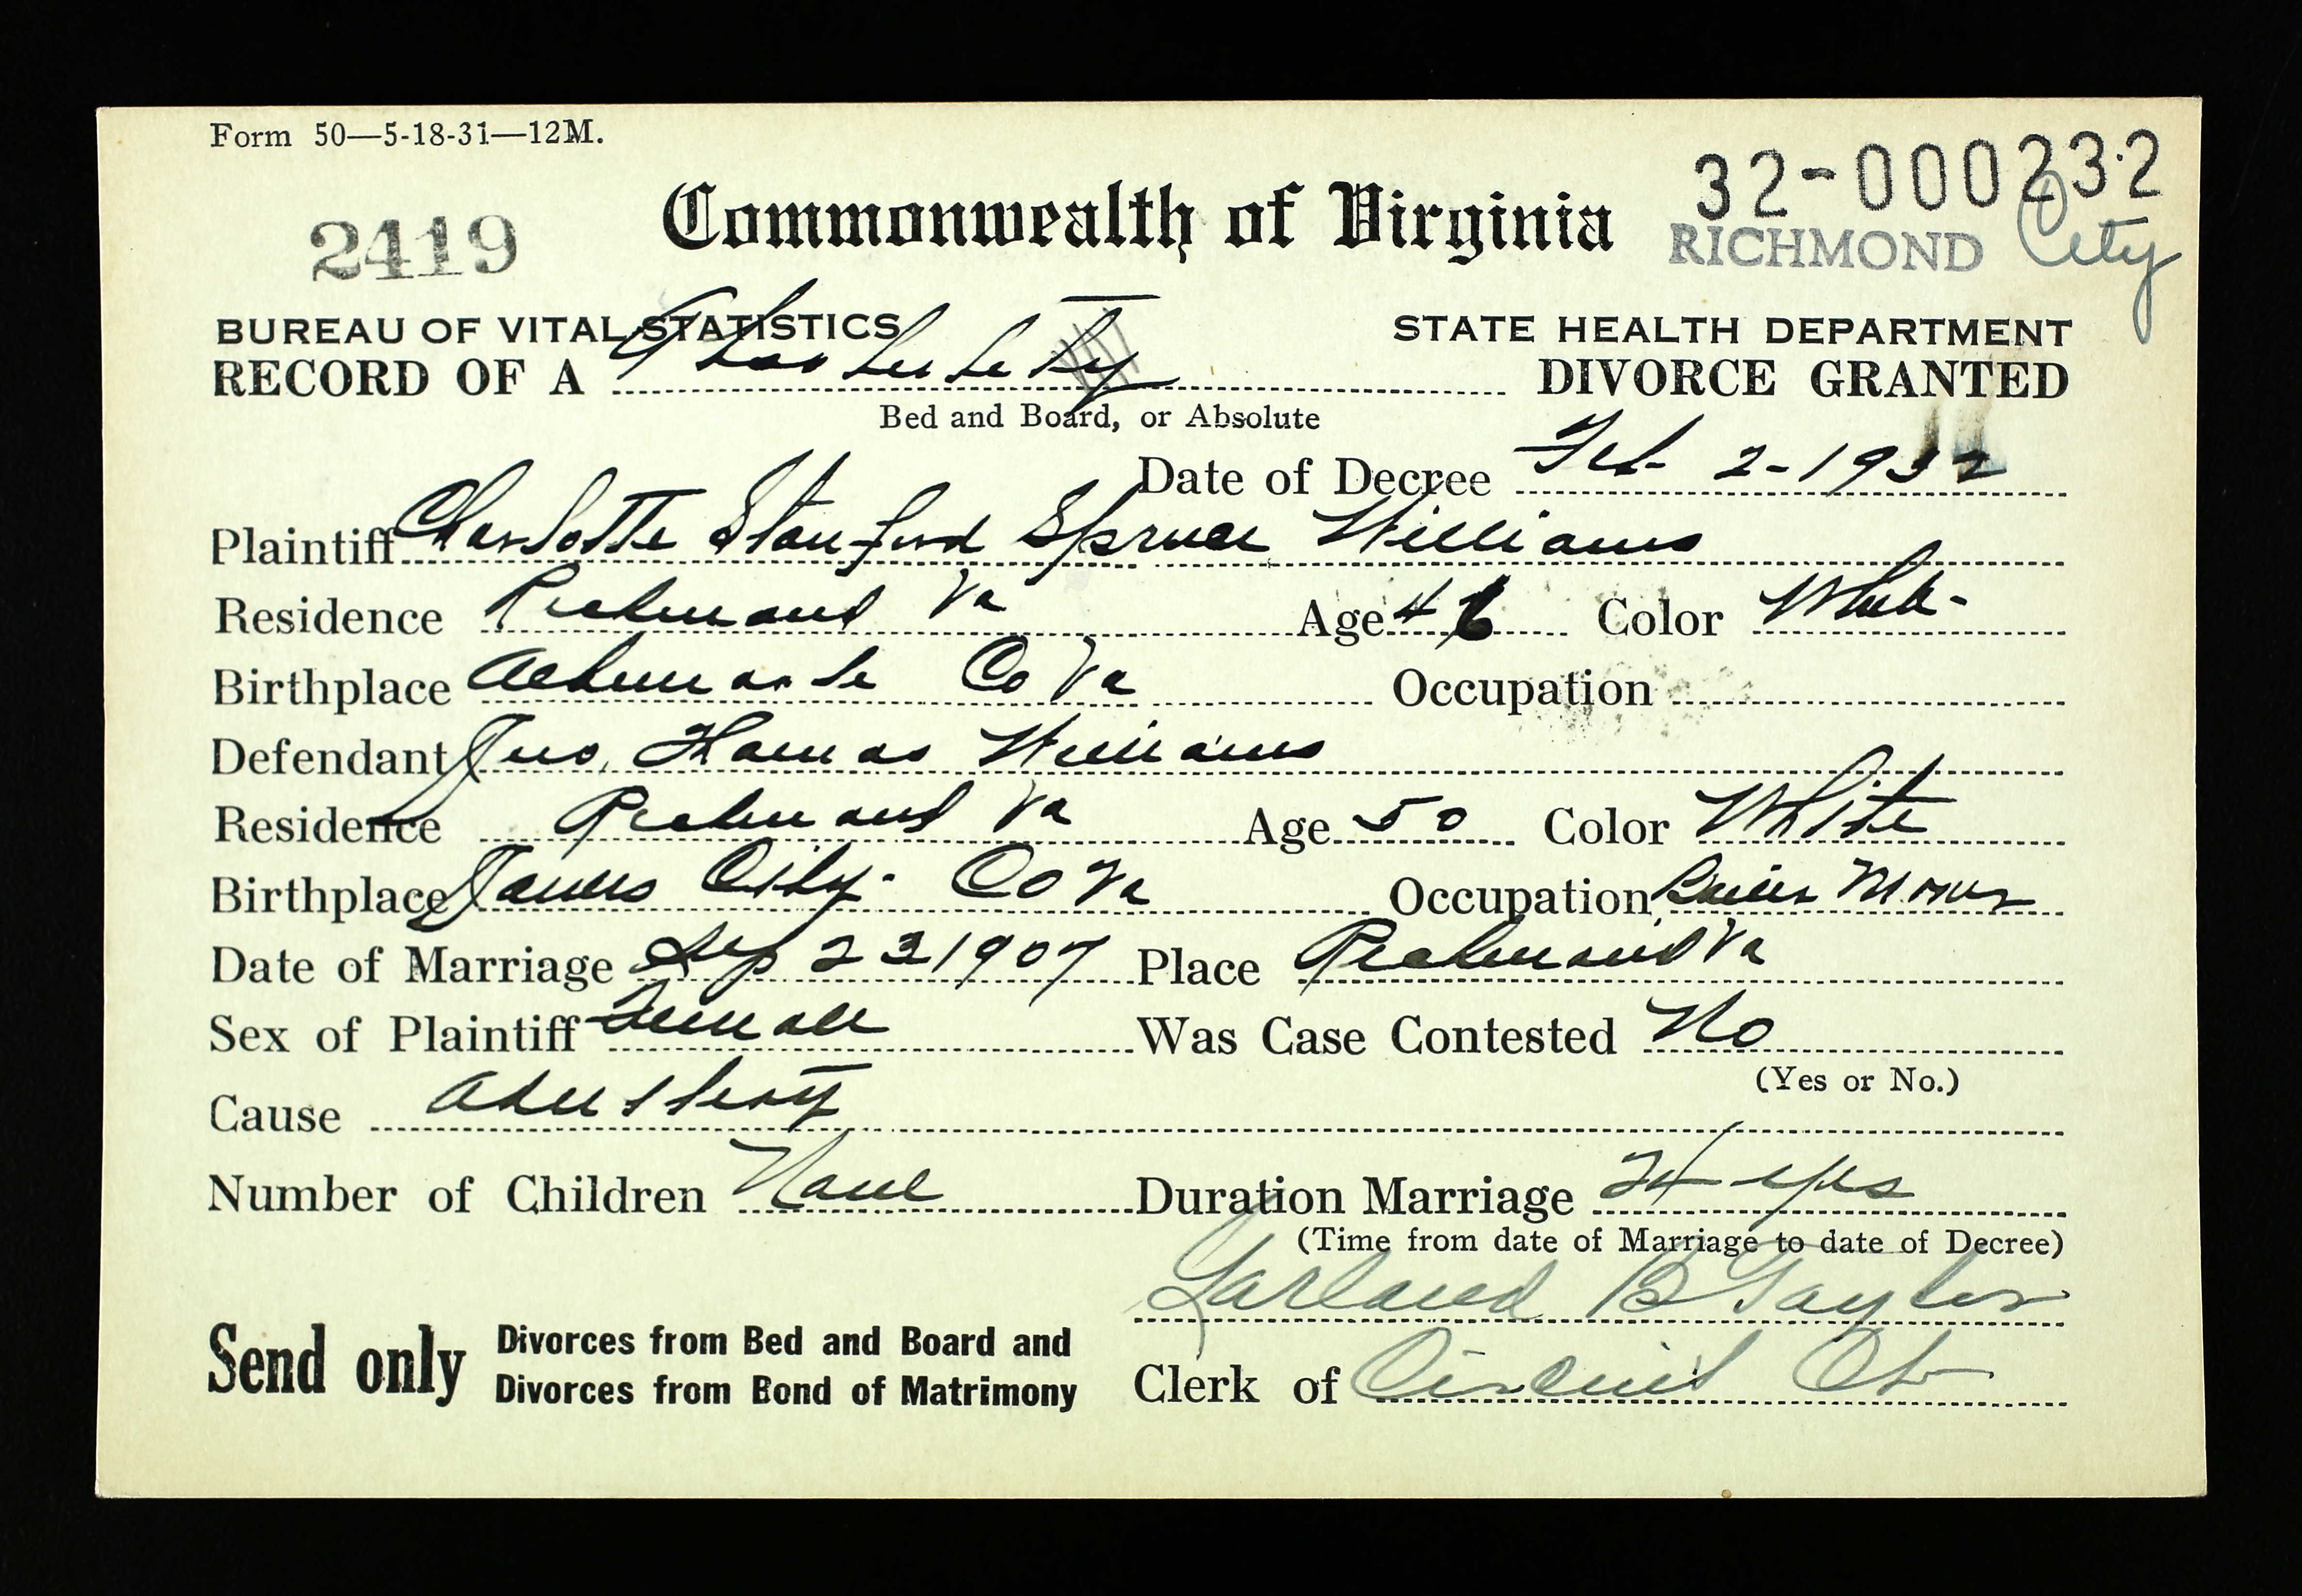 Form 50—5-18-31—12M.
32-000232
2419
Commonwealth of Virginia
RICHMOND City
BUREAU OF VITAL STATISTICS
STATE HEALTH DEPARTMENT
RECORD OF A DIVORCE GRANTED
Bed and Board, or Absolute
Date of Decree Feb 2-1932
Plaintiff Charlotte Stanford Spruce Williams
Residence Richmond Va Age 46 Color White
Birthplace Albemarle Co Va Occupation
Defendant Jno. Thomas Williams
Residence Richmond Va Age 50 Color White
Birthplace James City Co Va Occupation
Date of Marriage Sep 23 1907 Place Richmond Va
Sex of Plaintiff Female Was Case Contested No
(Yes or No.)
Cause Adultery
Number of Children None Duration Marriage 24 yrs
(Time from date of Marriage to date of Decree)
Garland B Taylor
Send only Divorces from Bed and Board and
Divorces from Bond of Matrimony
Clerk of Circuit Ct